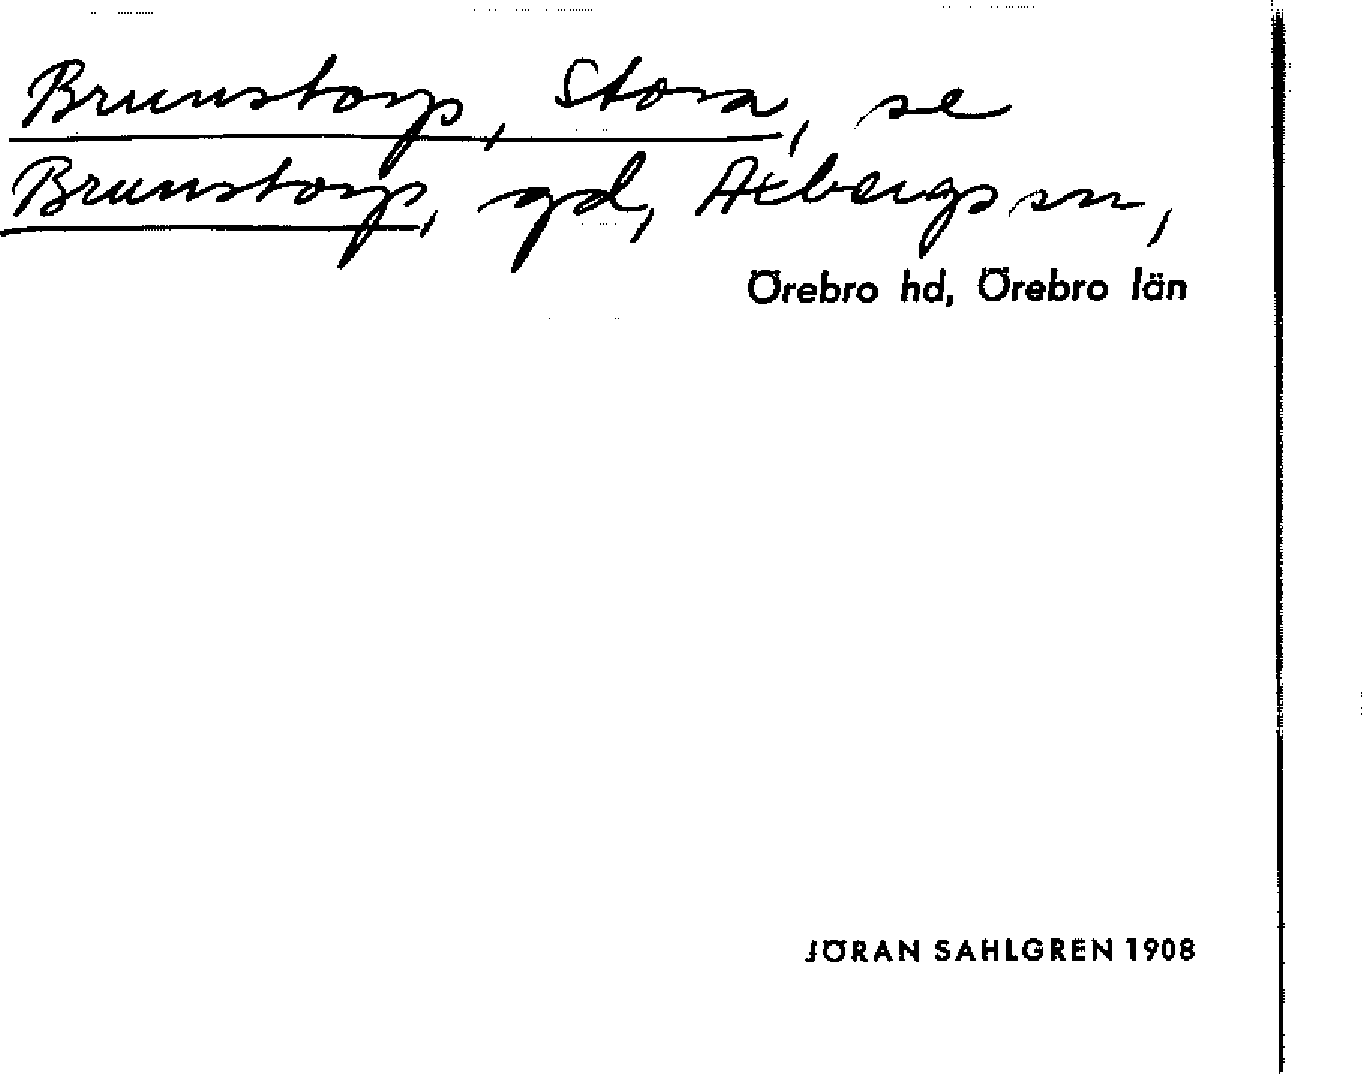 Brunstorp, Stora, se
Brunstorp, gd, Axbergs sn,
Örebro hd, Örebro län
JÖRAN SAHLGREN 1908